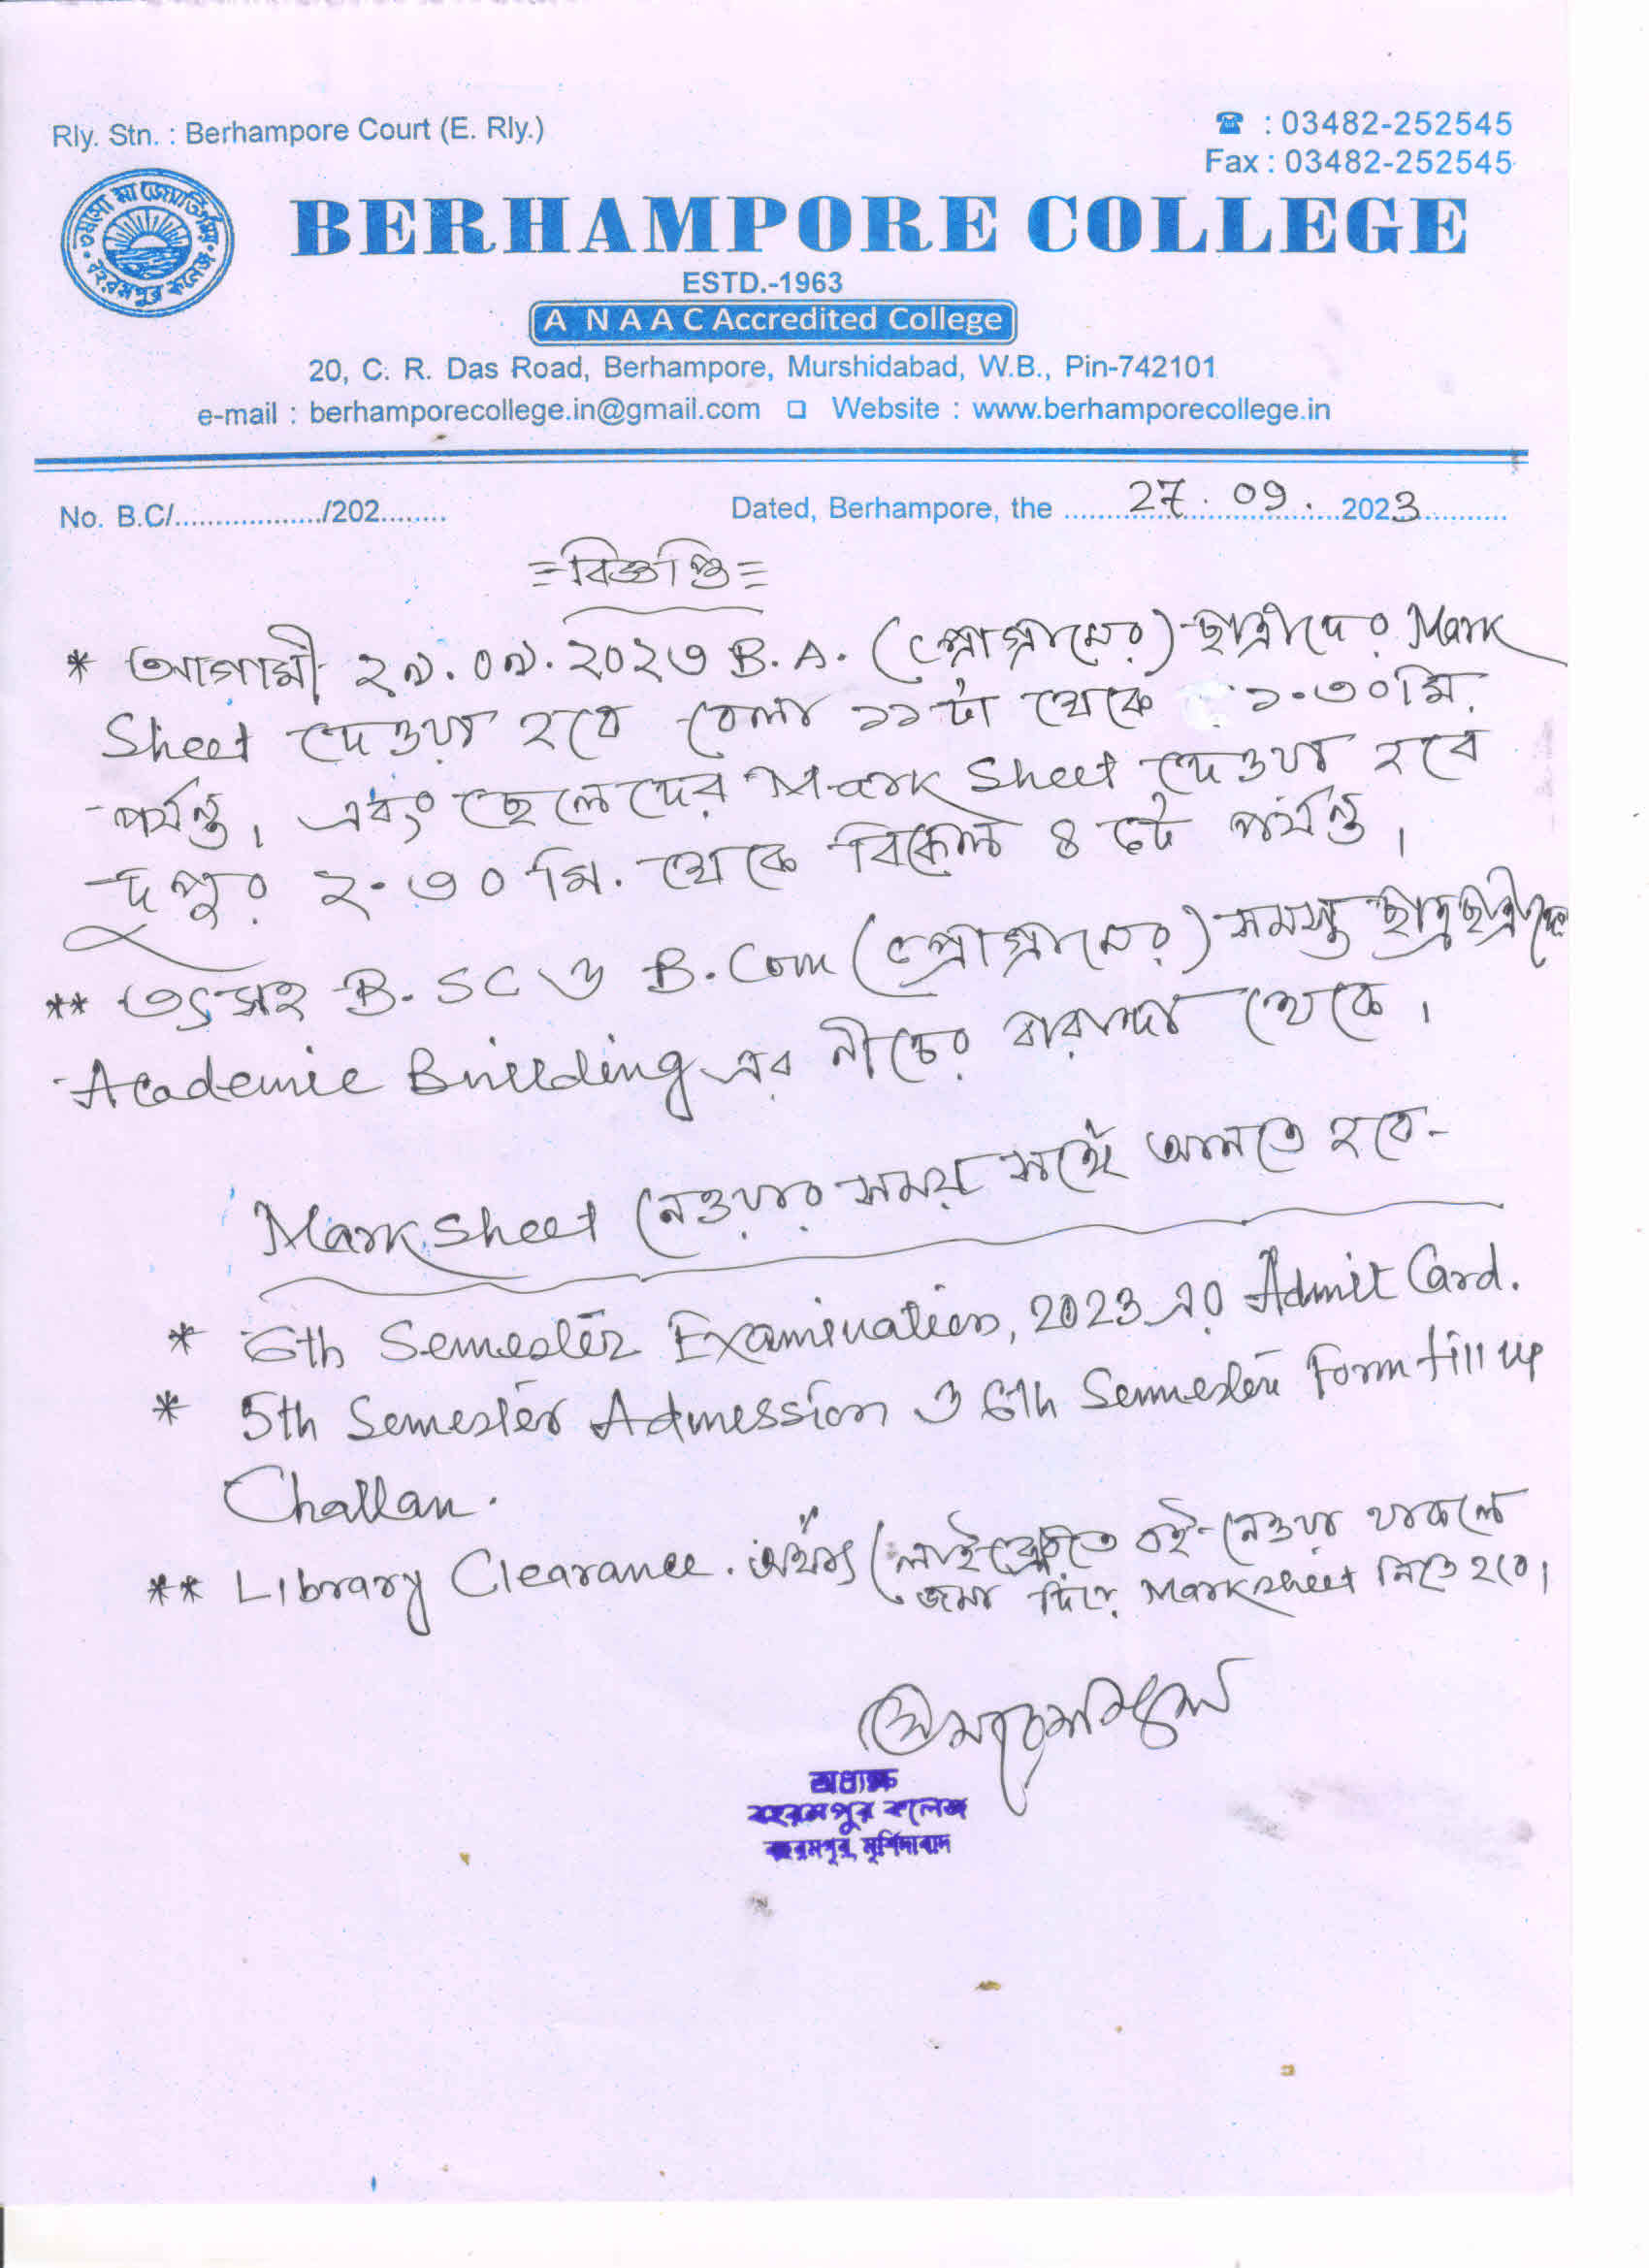 Rly. Stn. : Berhampore Court (E. Rly.)
☎ : 03482-252545
Fax : 03482-252545
তমসো মা জ্যোতির্গময়
বহরমপুর কলেজ
BERHAMPORE COLLEGE
ESTD.-1963
A NAAC Accredited College
20, C. R. Das Road, Berhampore, Murshidabad, W.B., Pin-742101
e-mail : berhamporecollege.in@gmail.com ❑ Website : www.berhamporecollege.in
No. B.C/................../202........ Dated, Berhampore, the ........27.09.2023...........
=বিজ্ঞপ্তি=
* আগামী ২৯.০৯.২০২৩ B.A. (প্রোগ্রামের) ছাত্রীদের Mark
Sheet দেওয়া হবে বেলা ১১টা থেকে ১.৩০মি.
পর্যন্ত। এবং ছেলেদের Mark Sheet দেওয়া হবে
দুপুর ২.৩০ মি. থেকে বিকেল ৪ টে পর্যন্ত।
** তৎসহ B.SC ও B.Com (প্রোগ্রামের) সমস্ত ছাত্রছাত্রীদের
Academic Building এর নীচের বারান্দা থেকে।
Mark Sheet নেওয়ার সময় সঙ্গে আনতে হবে-
* 6th Semester Examination, 2023 এর Admit Card.
* 5th Semester Admission ও 6th Semester Form fill up
Challan.
** Library Clearance. অর্থাৎ লাইব্রেরীতে বই নেওয়া থাকলে
জমা দিয়ে Marksheet নিতে হবে।
অধ্যক্ষ
বহরমপুর কলেজ
বহরমপুর, মুর্শিদাবাদ